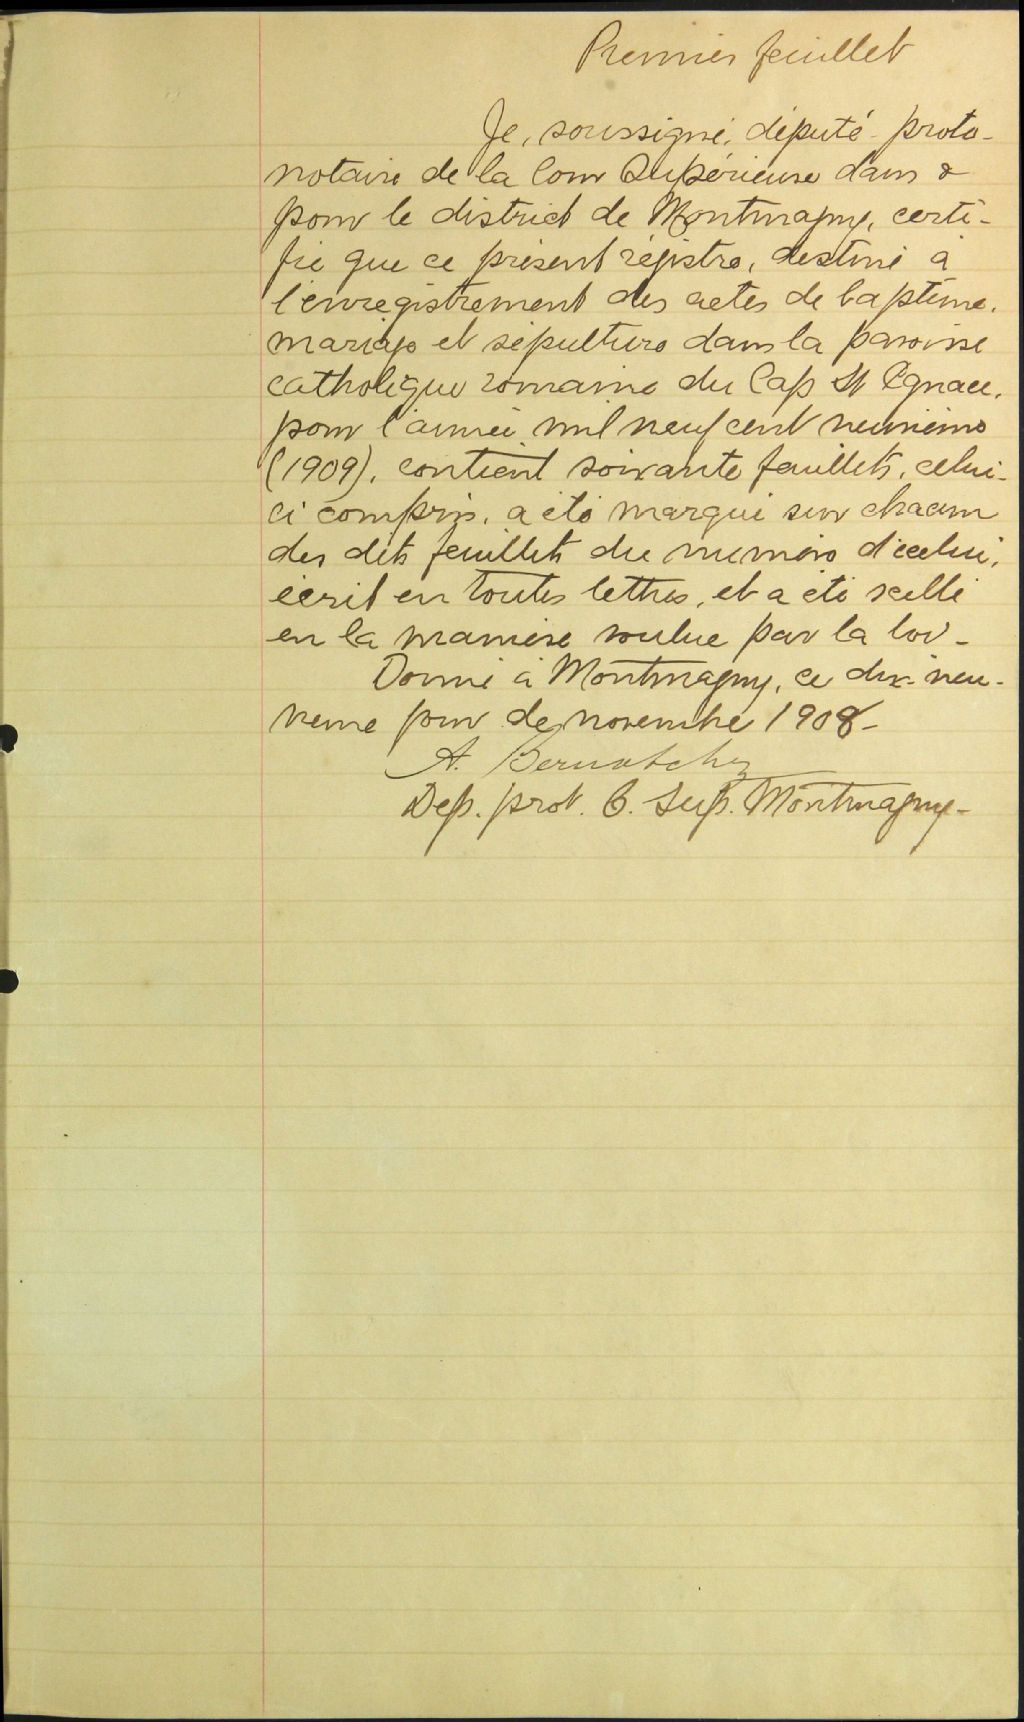 Premier feuillet
Je, soussigné, député-proto-
notaire de la Cour Supérieure dans &
pour le district de Montmagny, certi-
fie que ce présent régistre, destiné à
l'enregistrement des actes de baptême,
mariage et sépulture dans la paroisse
catholique romaine du Cap St Ignace,
pour l'année mil neuf cent neuvième
(1909), contient soixante feuillets, celui-
ci compris, a été marqué sur chacun
des dits feuillets du numéro d'icelui,
écrit en toutes lettres, et a été scellé
en la manière voulue par la loi -
Donné à Montmagny, ce dix-neu-
vième jour de novembre 1908 -
A. Bernatchez
Dep. prot. C. Sup. Montmagny -